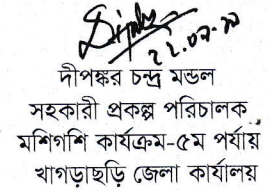 ২২.০২.২১
দীপঙ্কর চন্দ্র মন্ডল
সহকারী প্রকল্প পরিচালক
মশিগশি কার্যক্রম-৫ম পর্যায়
খাগড়াছড়ি জেলা কার্যালয়